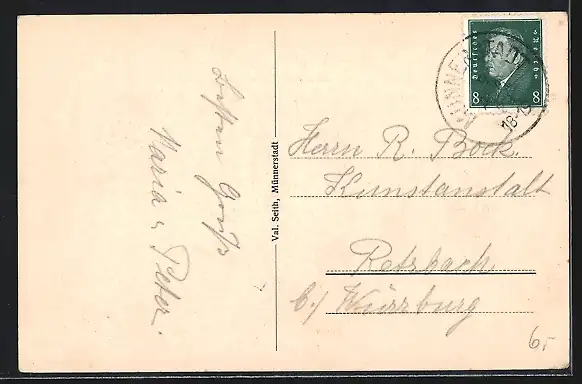 Besten Gruß
Maria u. Peter.
Val. Seith, Münnerstadt
Deutsches Reich
8 8
MÜNNERSTADT
18-19
Herrn R. Bock.
Kunstanstalt
Retzbach.
b/ Würzburg
6,-